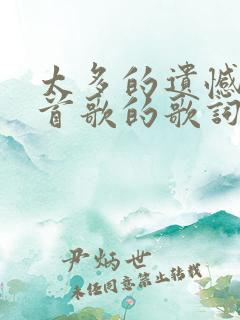 太多的遗憾
首歌的歌词
尹炳世
未经同意禁止转载